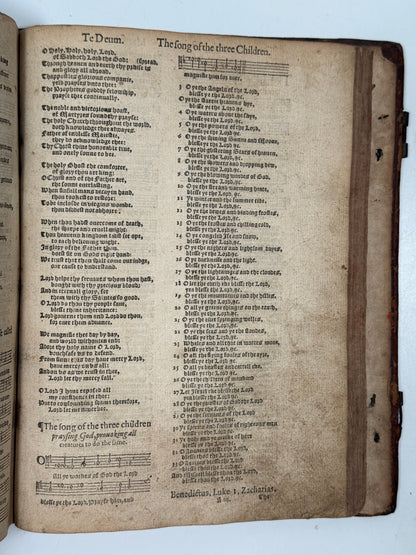 Te Deum.
O Holy, Holy, holy, Lord,
of Sabboth Lord the God:
Through heaven and earth thy praise is
and glory all abroad.
Th'apostles glorious company,
yeld prayses unto thee:
The Prophetes goodly felowship,
prayse thee continually.
The noble and victorious hoost,
of Martyrs sound thy prayse:
The holy Church throughout the world,
doth knowledge thee alwayes.
Father of endlesse Majestie,
they do acknowledge thee:
Thy Christ thine honorable true,
and onely sonne to bee.
The holy Ghost the comforter,
of glory thou art king:
O Christ and of the Father art,
the sonne everlasting.
When sinfull mans decay in hand,
thou tookest to restore:
To be enclosde in virgins wombe,
thou didest not abhorre.
When thou hadst overcome of death,
the sharpe and cruell might:
Thou heavens kingdome didst set ope,
to each beleeving wight.
In glory of the Father
doest sit on Gods right hand:
We trust that thou shalt come our iudge,
our cause to understand.
Lord helpe thy servants whom thou hast,
bought with thy precious bloud:
And in eternall glory, set
them with thy Saintes so good.
O Lord do thou thy people save,
blesse thine inheritance:
Lord governe them and Lord do thou,
for ever them advance.
We magnifie thee day by day,
and world withouten end:
Adore thy holy name O Lord,
vouchsafe us to defend:
From sinne this day have mercy Lord,
have mercy on us all:
And on us as we trust in thee,
Lord let thy mercy fall.
O Lord I have reposed all
my confidence in thee:
Put to confounding shame therefore,
Lord let me never bee.
¶The song of the three children
praysing God, provoking all
creatures to do the same.
O
all ye workes of God the Lord
blesse ye the Lord, Prayse him, and
The song of the three Children.
magnifie him for ever.
O ye the Angels of the Lord
blesse ye the Lord, &c.
O ye the starry heavens hye,
blesse ye the Lord, &c.
O ye waters above the skye,
blesse ye the Lord, &c.
O ye the powers of the Lord,
blesse ye the Lord, &c.
O ye the shining Sunne and Moone
blesse ye the Lord, &c.
O ye the glistering starres of heaven,
blesse ye the Lord, &c.
O ye the showers and dropping dew,
blesse ye the Lord, &c.
O ye the blowing windes of God,
blesse ye the Lord, &c.
O ye the fire and warming heate,
blesse ye the Lord, &c.
Ye winter and the summer tide,
blesse ye the Lord, &c.
O ye the dewes and binding frostes,
blesse ye the Lord, &c.
O ye the frostes and chilling cold,
blesse ye the Lord, &c.
O ye congeled Ise and snow,
blesse ye the Lord, &c.
O ye the nightes and lightsom dayes,
blesse ye the Lord, &c.
O ye the darkenes and the light,
blesse ye the Lord, &c.
O ye the lightninges and the cloudes,
blesse ye the Lord, &c.
O let the earth eke blesse the Lord,
yea blesse the Lord, &c.
O ye the mountaines and the hilles,
blesse ye the Lord, &c.
O all ye greene thinges on the earth,
blesse ye the Lord, &c.
O ye the ever springing welles,
blesse ye the Lord, &c.
O ye the seas and ye the floudes,
blesse ye the Lord, &c.
Whales and all that in waters move,
blesse ye the Lord, &c.
O all the flying foules of the ayre,
blesse ye the Lord, &c.
O all ye beastes and cattell eke,
blesse ye the Lord, &c.
O ye the children of mankinde
blesse ye the Lord, &c.
Let Israel eke blesse the Lord
yea blesse the Lord, &c.
O ye the priestes of God the Lord
blesse ye the Lord, &c.
O ye the servauntes of the Lord
blesse ye the Lord, &c.
Ye spirits and soules of righteous men
blesse ye the Lord, &c.
Ye holy and ye meeke of hart
blesse ye the Lord, &c.
O Ananias blesse the Lord
blesse ye the Lord, &c.
Benedictus. Luke 1. Zacharias.
The